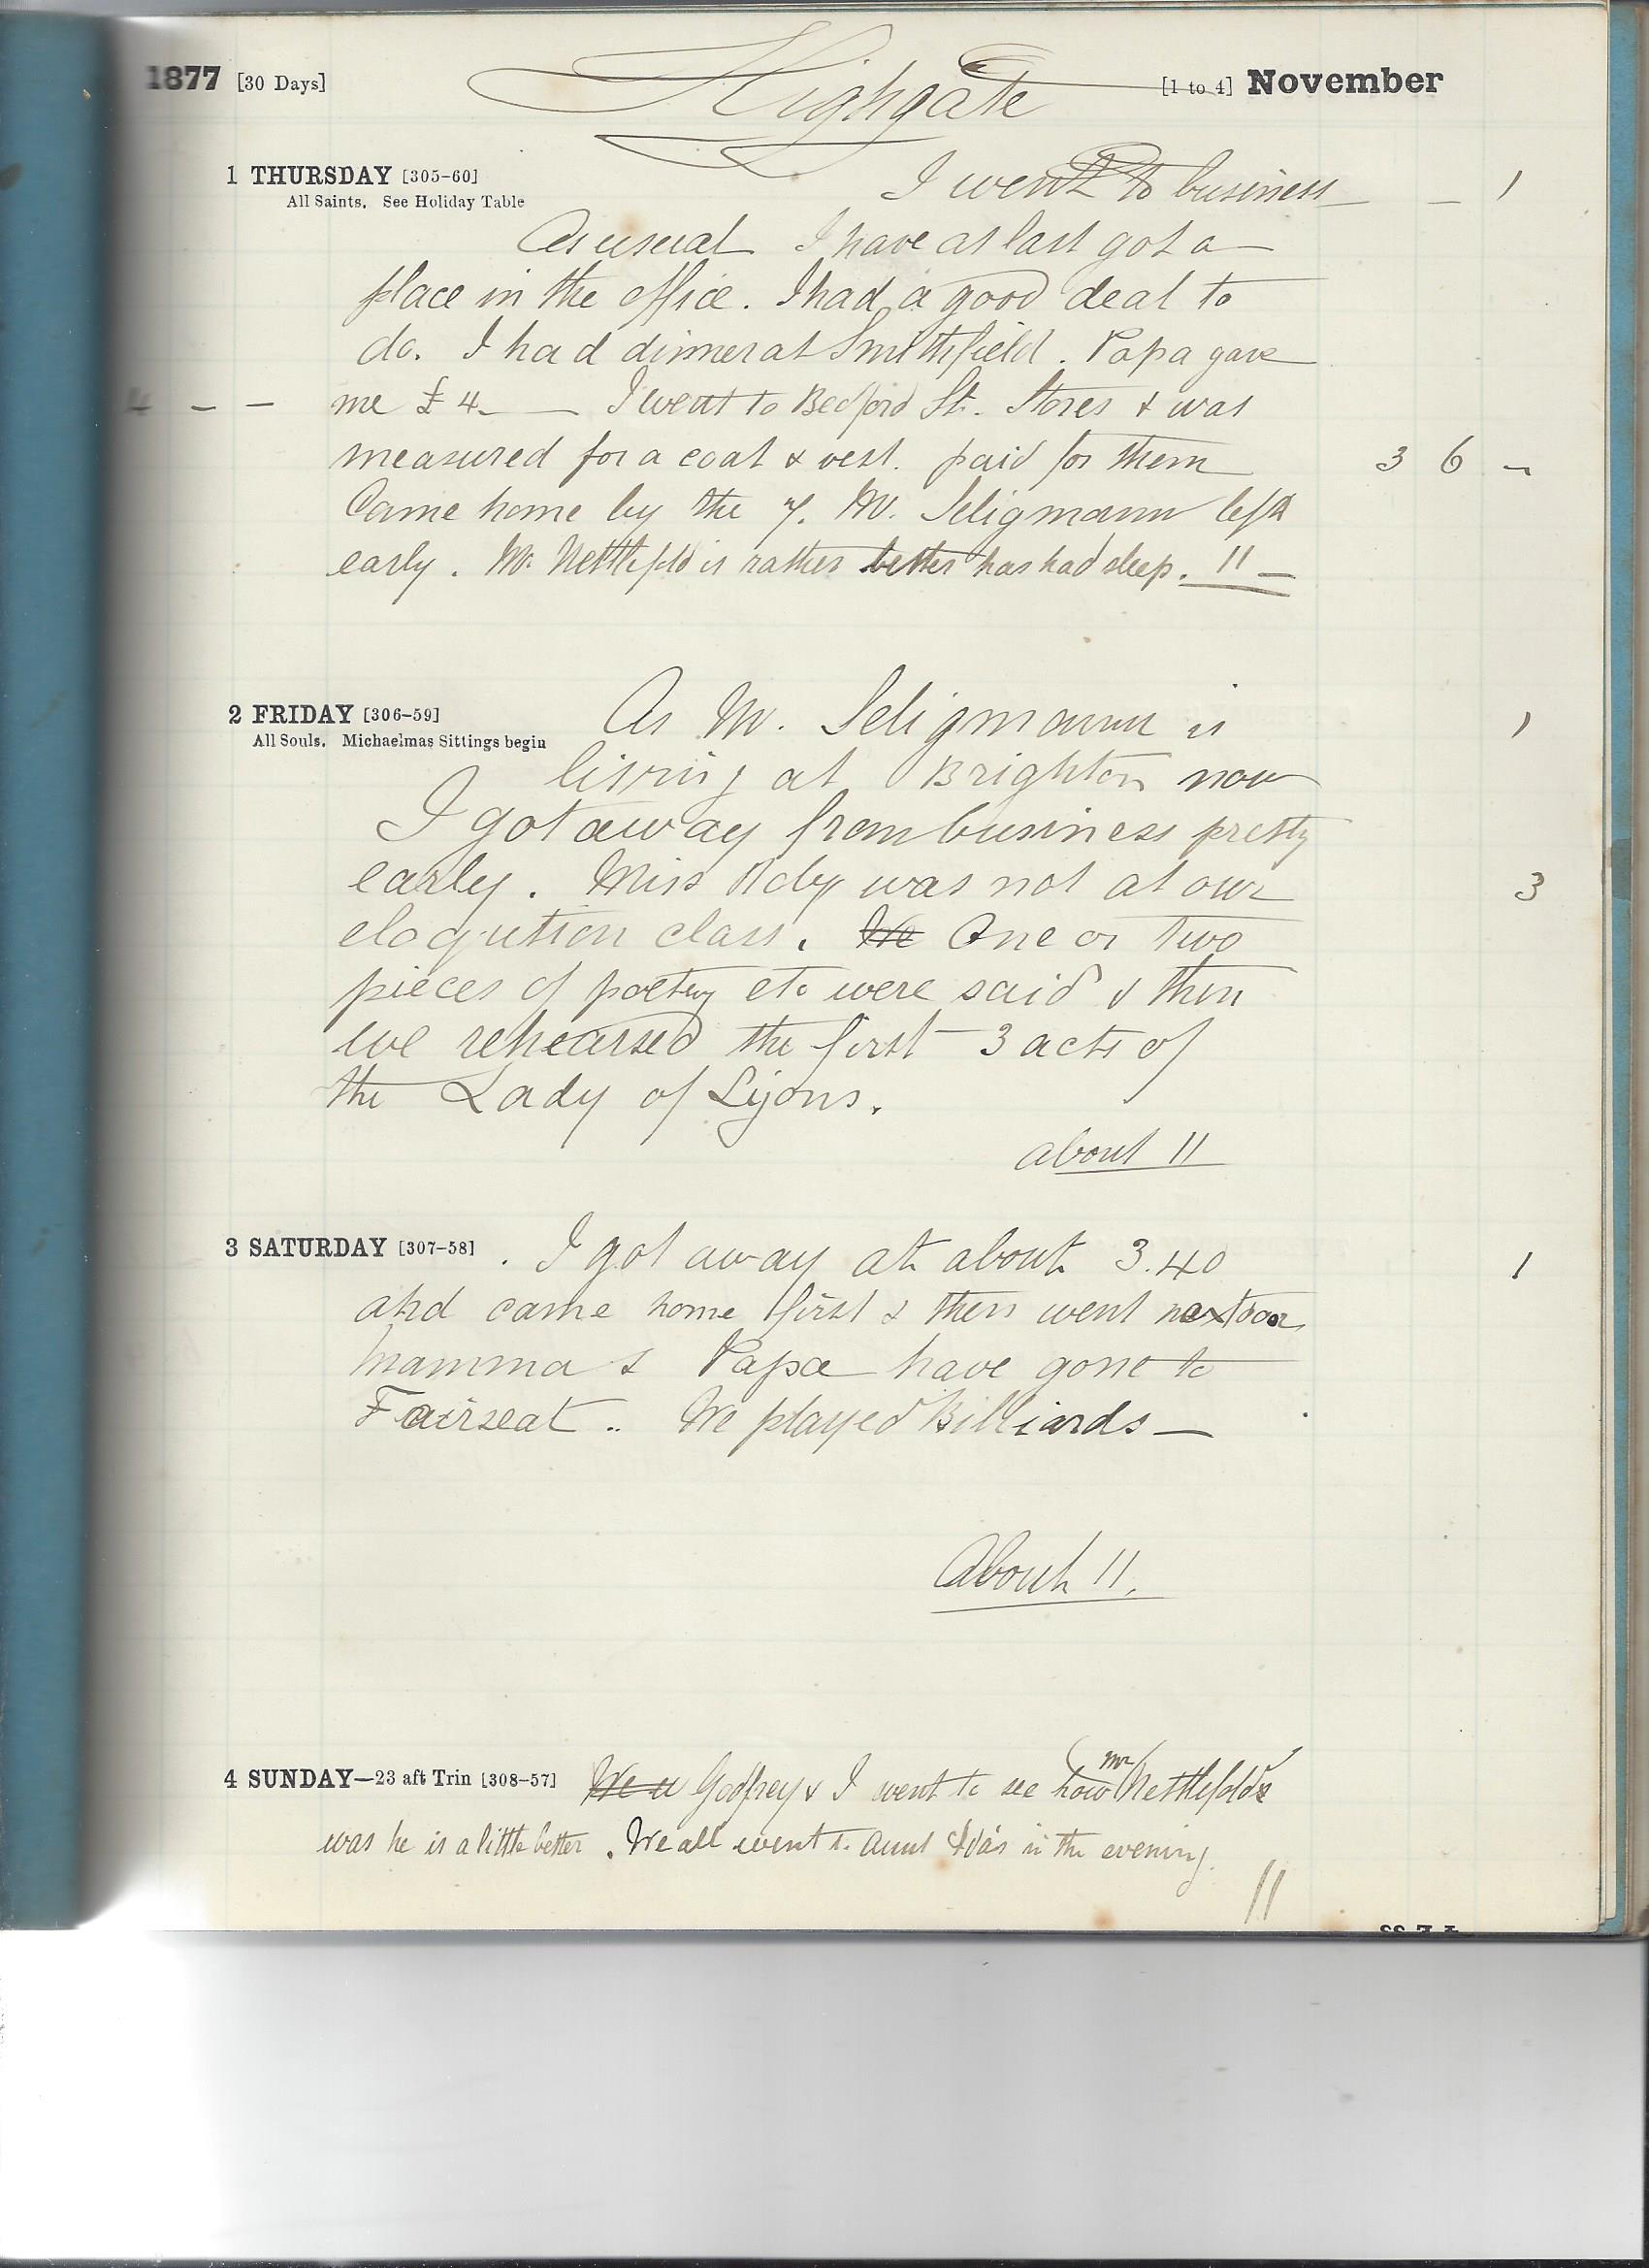 1877 [30 Days] Highgate [1 to 4] November
1 THURSDAY [305-60] I went to business — 1
All Saints. See Holiday Table
As usual I have at last got a
place in the office. I had a good deal to
do. I had dinner at Smithfield. Papa gave
4 – – me £4. — I went to Bedford St. Stores & was
measured for a coat & vest. paid for them 3 6 –
Came home by the 7. Mr. Seligmann left
early. Mr. Nettlefold is rather better has had sleep. 11 —
2 FRIDAY [306-59] As Mr. Seligmann is 1
All Souls. Michaelmas Sittings begin
living at Brighton now
I got away from business pretty
early. Miss was not at our 3
eloqution class. We One or two
pieces of poetry etc were said & then
we rehearsed the first 3 acts of
the Lady of Lyons.
about 11
3 SATURDAY [307-58] . I got away at about 3.40 1
and came home first & then went next door
Mamma & Papa have gone to
Fairseat .. We played Billiards —
About 11.
4 SUNDAY—23 aft Trin [308-57] We w Godfrey & I went to see how Mr Nettlefold
was he is a little better . We all went to Aunt Ada's in the evening.
11